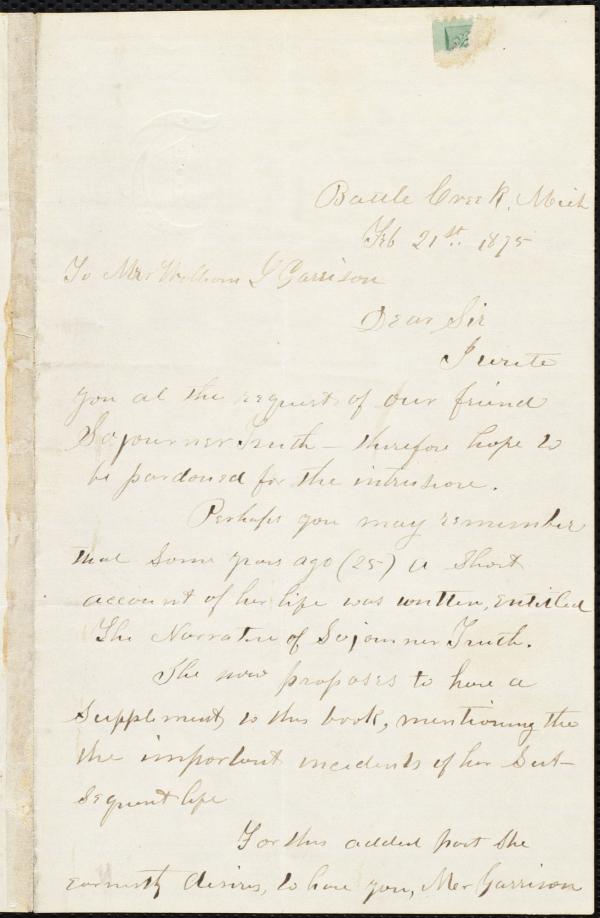 Battle Creek, Mich
Feb 21st. 1875
To Mr William L Garrison
Dear Sir
I write
you at the request of our friend
Sojourner Truth – therefore hope to
be pardoned for the intrusion.
Perhaps you may remember
that some years ago (25) a short
account of her life was written, entitled
The Narrative of Sojourner Truth.
She now proposes to have a
supplement, to this book, mentioning the
the important incidents of her sub-
sequent life
For this added part she
earnestly desires, to have you, Mr Garrison